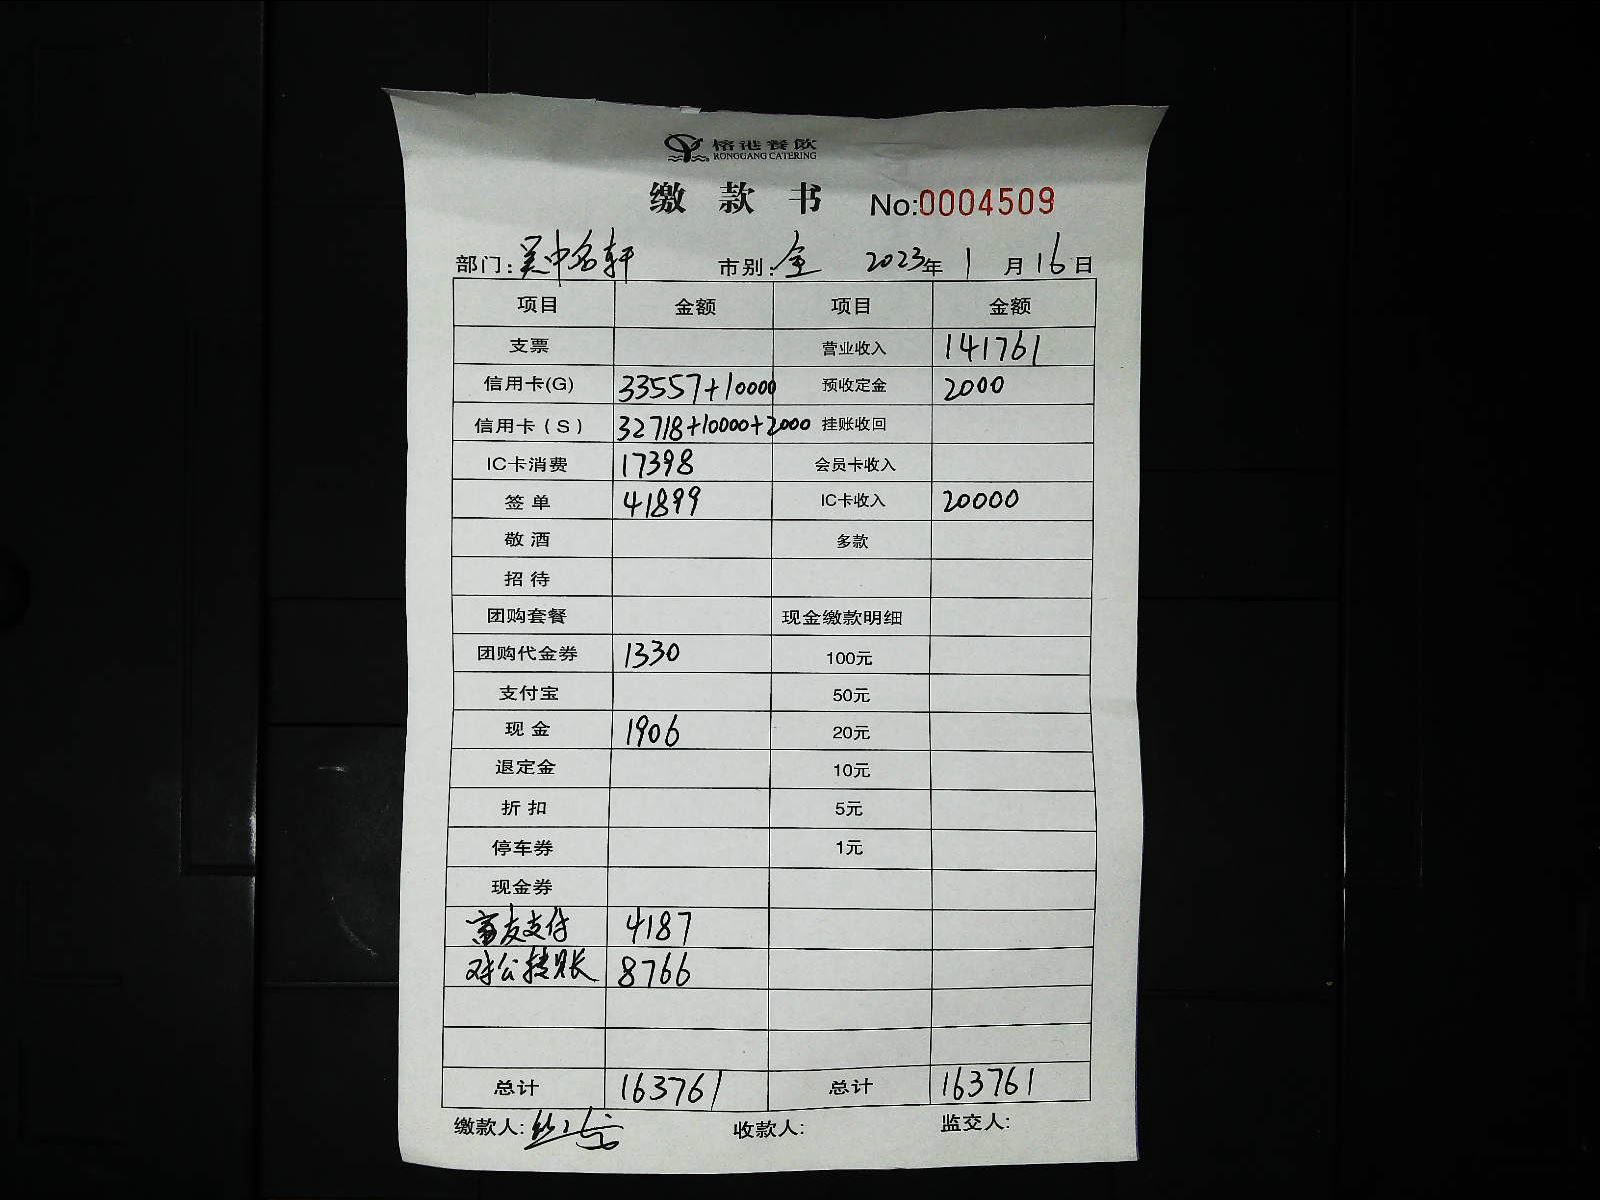 榕港餐饮
RONGGANG CATERING
缴款书 No:0004509
部门:吴中名轩 市别:全 2023年1月16日
项目 金额 项目 金额
支票 营业收入 141761
信用卡(G) 33557+10000 预收定金 2000
信用卡(S) 32718+10000+2000 挂账收回
IC卡消费 17398 会员卡收入
签单 41899 IC卡收入 20000
敬酒 多款
招待
团购套餐 现金缴款明细
团购代金券 1330 100元
支付宝 50元
现金 1906 20元
退定金 10元
折扣 5元
停车券 1元
现金券
支付 4187
对公转账 8766
总计 163761 总计 163761
缴款人: 收款人: 监交人: